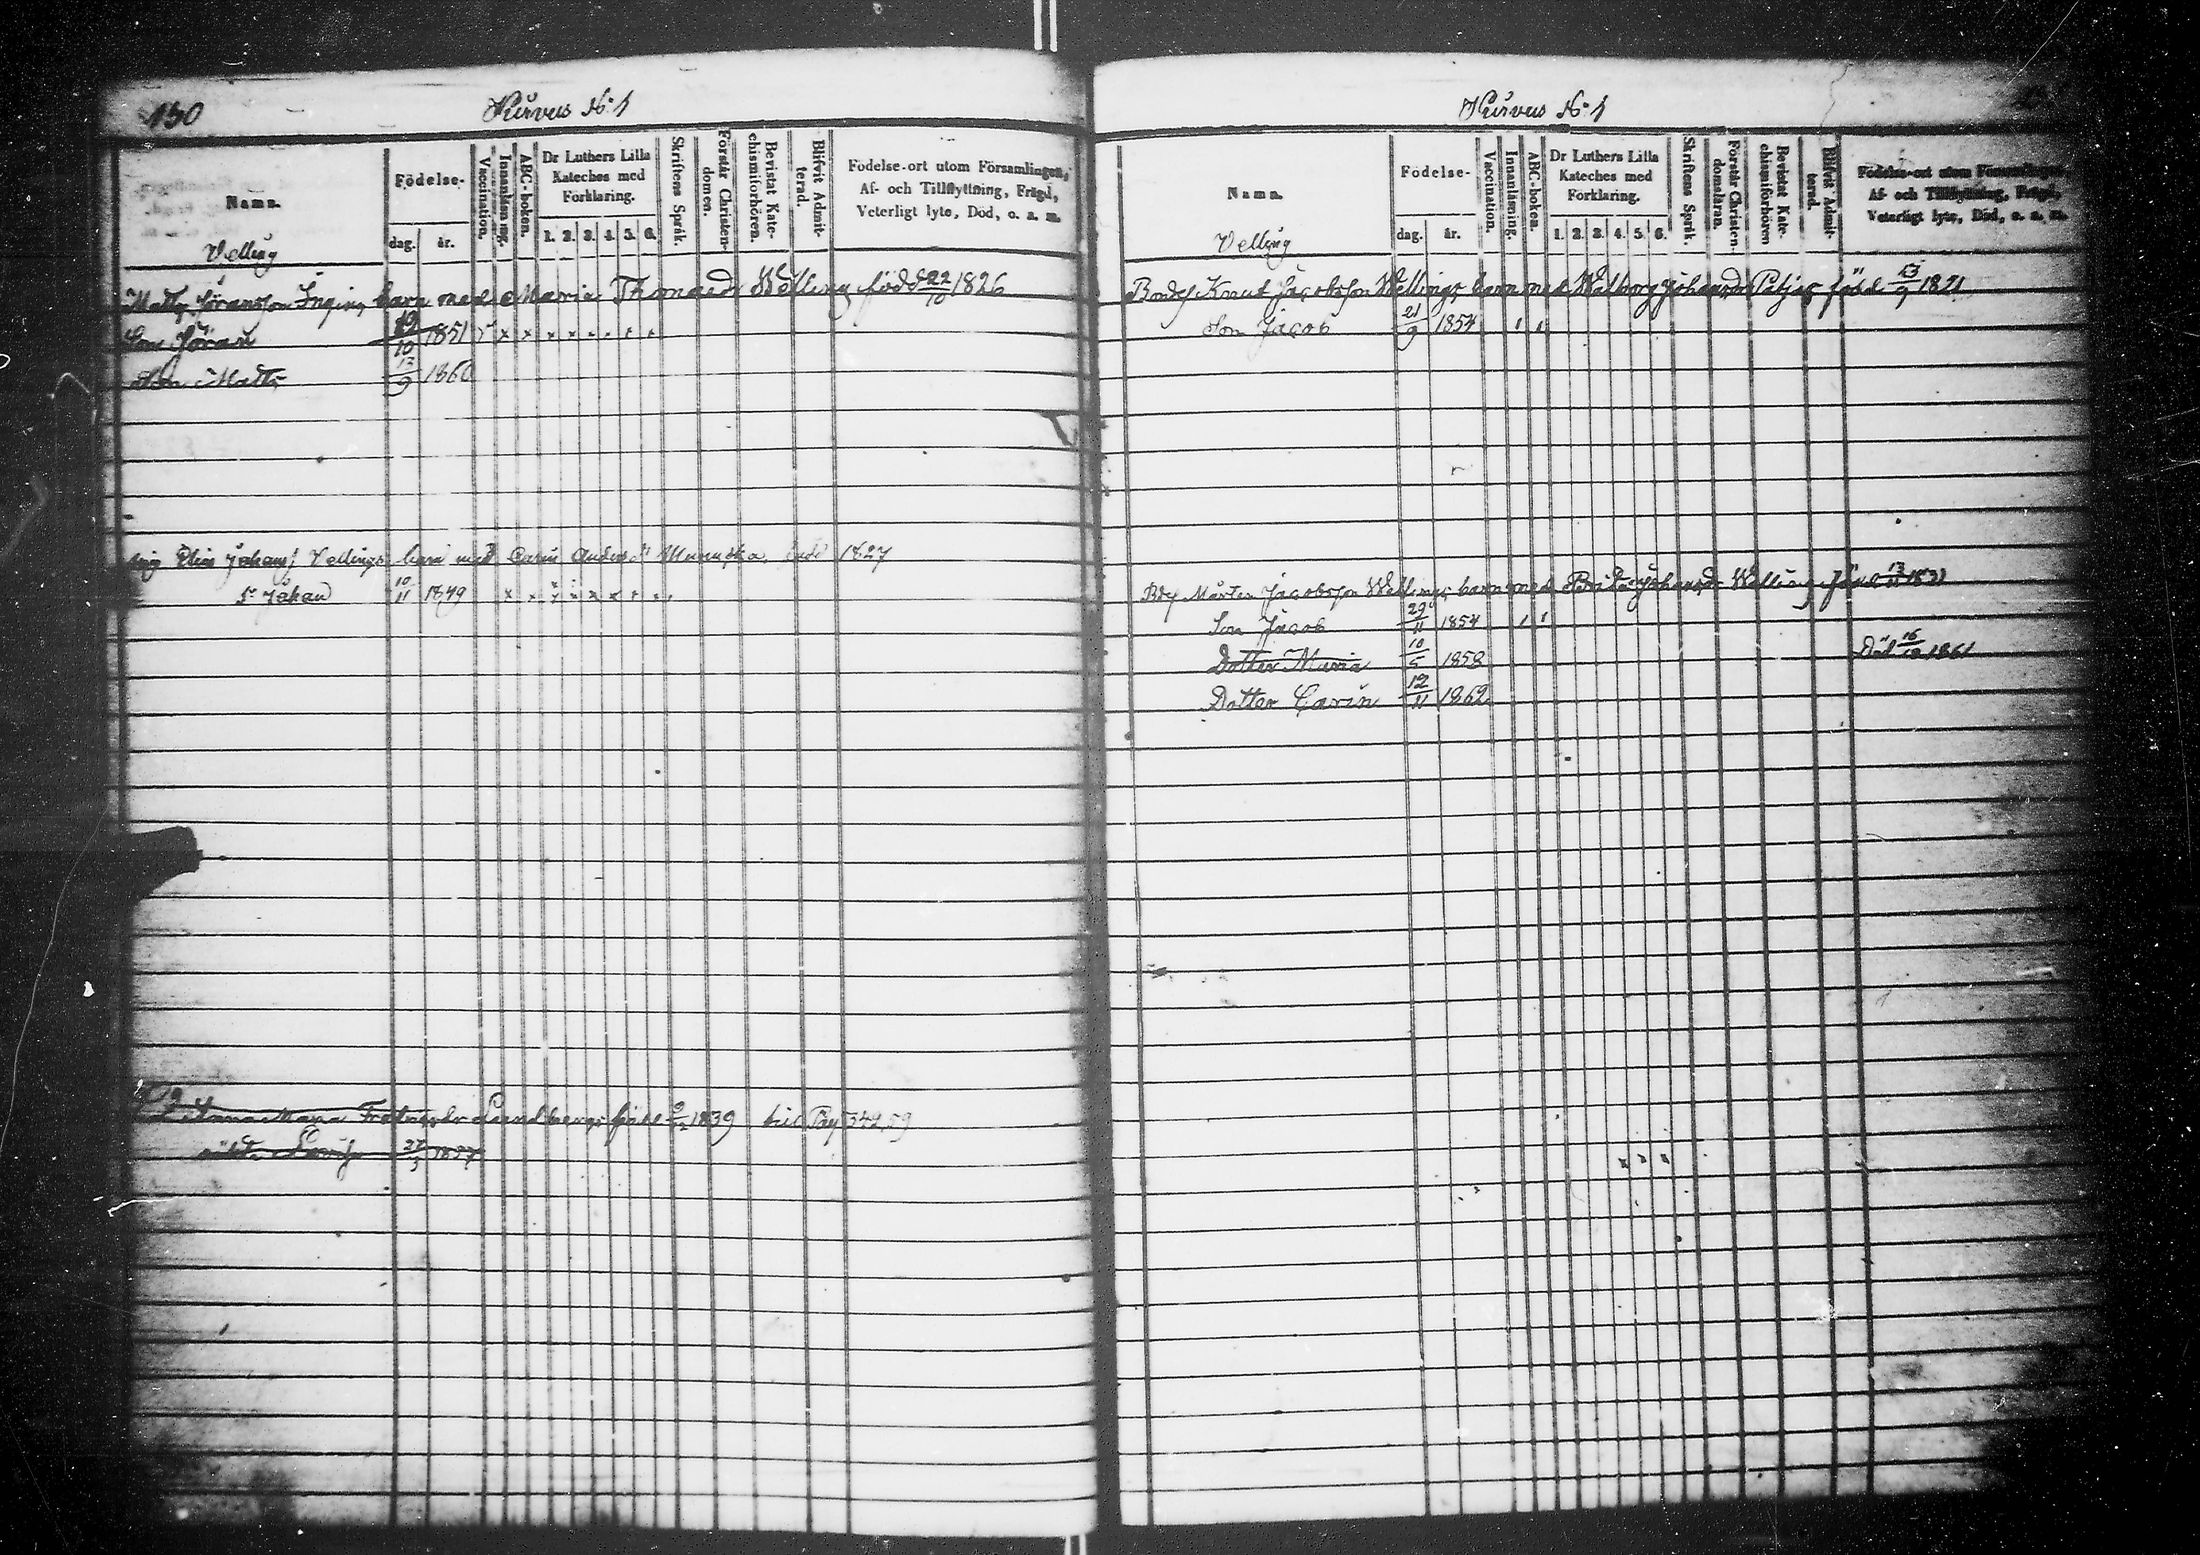 150
Kurvus No 1
Namn.
Födelse-
dag. år.
Vaccination.
Innanläsning.
ABC-boken.
Dr Luthers Lilla
Kateches med
Förklaring.
1. 2. 3. 4. 5. 6.
Skriftens Språk.
Förstår Christen-
domen.
Bevistat Kate-
chismiförhören.
Blifvit Admit-
terad.
Födelse-ort utom Församlingen,
Af- och Tillflyttning, Frägd,
Veterligt lyte, Död, o. s. m.
Velling
Matts Jöransson barn med Maria Thomasdr Welling född 22/10 1826
Son Jöran 19/10 1851
Son Matts 13/9 1860
Elias Johans Vellings barn med Carin Anders dr 1827
Sn Johan 10/11 1849
Anna Maria Lundbergs född 1839 till Pag 342,59
27/3 1857
Kurvus No 1
Namn.
Födelse-
dag. år.
Vaccination.
Innanläsning.
ABC-boken.
Dr Luthers Lilla
Kateches med
Förklaring.
1. 2. 3. 4. 5. 6.
Skriftens Språk.
Förstår Christen-
domsläran.
Bevistat Kate-
chismiförhören
Blifvit Admit-
terad.
Födelse-ort utom Församlingen,
Af- och Tillflyttning, Frägd,
Veterligt lyte, Död, o. s. m.
Velling
Knut Jacobsson Wellings barn med Walborg Johansdr född 13/9 1821
Son Jacob 21/9 1854
Mårten Jacobsson Wellings barn med Brita Johansdr Welling född
Son Jacob 29/11 1854
Dotter Maria 10/5 1858 Död 1861
Dotter Carin 12/11 1862